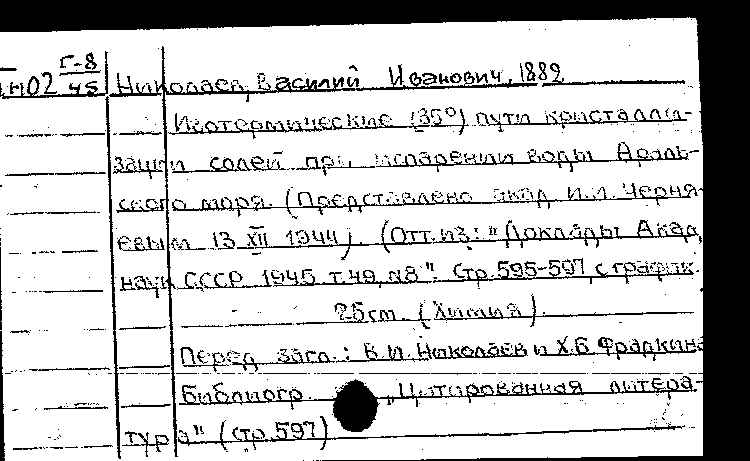 Г-8
НО2 45 Николаев, Василий Иванович, 1882
Изотермические (35°) пути кристалли-
зации солей при испарении воды Араль-
ского моря. (Представлено акад. И.И. Черня-
евым 13 XII 1944). (Отт. из: "Доклады Акад.
наук СССР 1945 т.49, №8". Стр. 595-597, с график.
25 cm. (Химия).
Перед загл.: В.И. Николаев и Х.Б. Фрадкина
Библиогр. „Цитированная литера-
тура" (стр. 597)